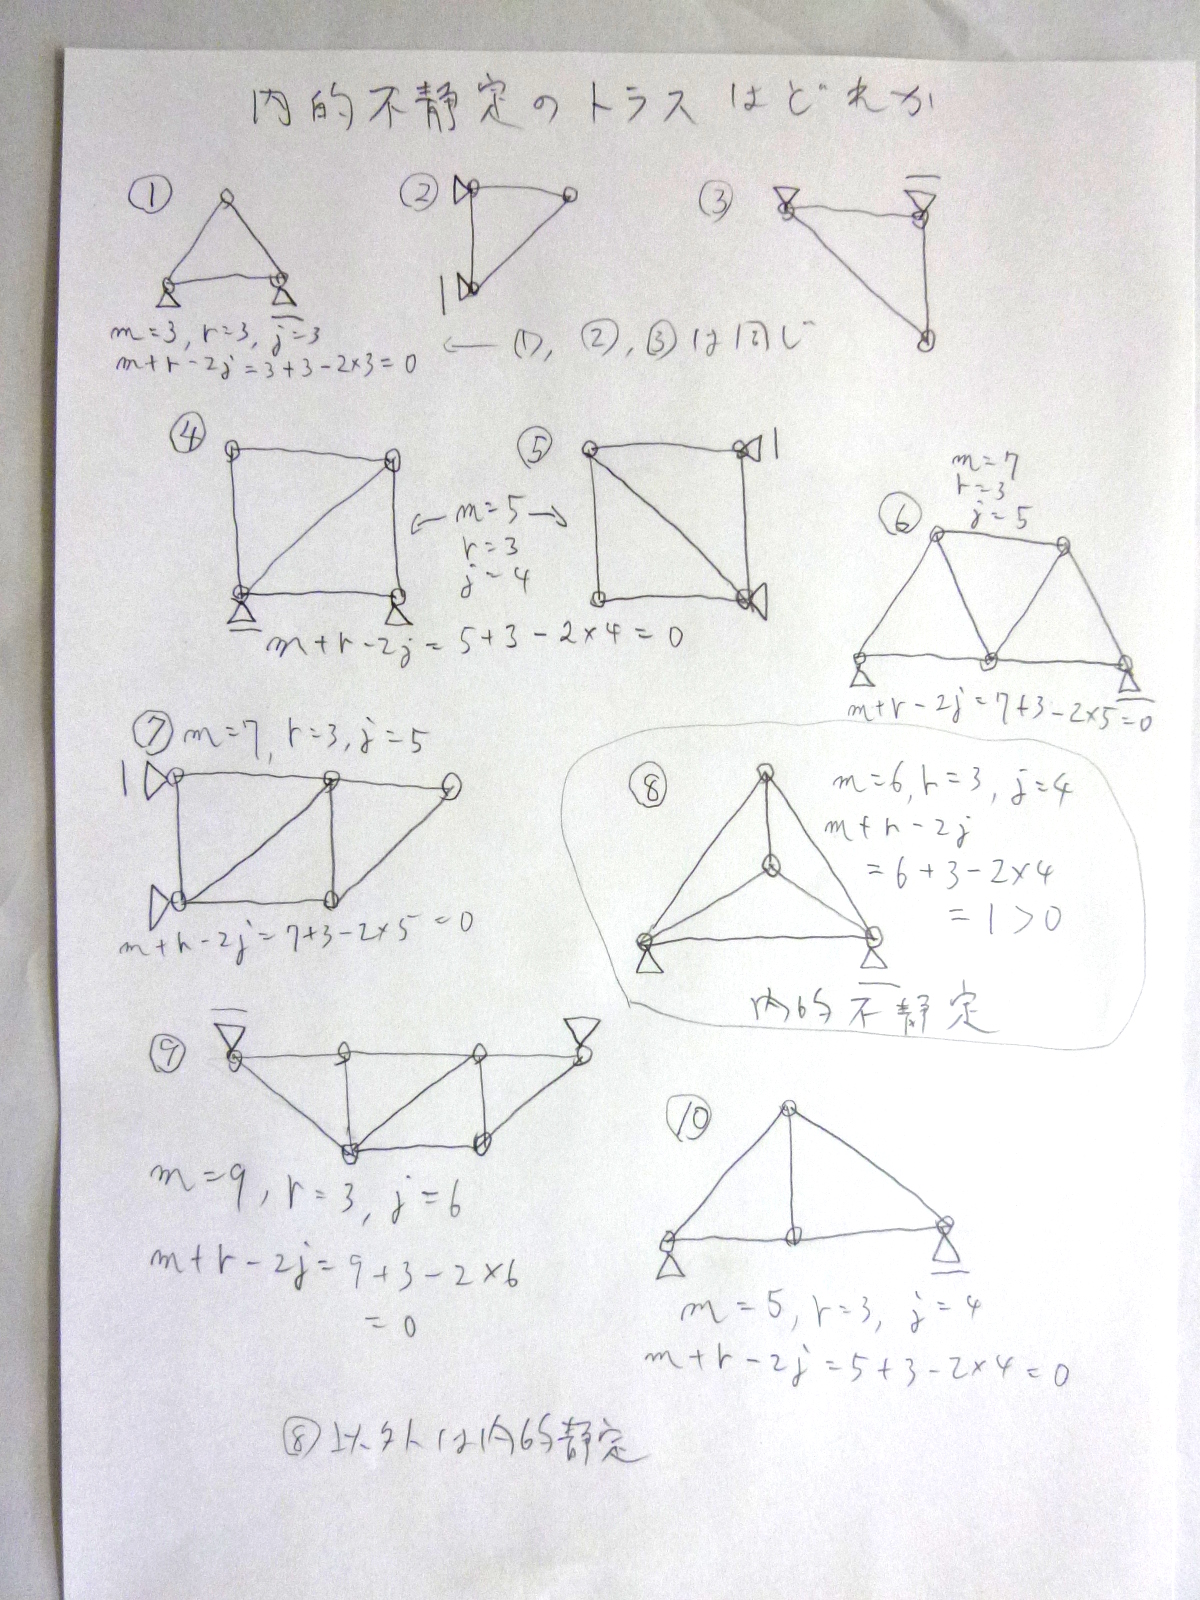 内的不静定のトラスはどれか
①
②
③
m=3, r=3, j=3
m+r-2j=3+3-2×3=0
← ①, ②, ③は同じ
④
⑤
← m=5 →
r=3
j=4
m+r-2j=5+3-2×4=0
m=7
r=3
j=5
⑥
m+r-2j=7+3-2×5=0
⑦ m=7, r=3, j=5
m+r-2j=7+3-2×5=0
⑧
m=6, r=3, j=4
m+r-2j
=6+3-2×4
=1>0
内的不静定
⑨
m=9, r=3, j=6
m+r-2j=9+3-2×6
=0
⑩
m=5, r=3, j=4
m+r-2j=5+3-2×4=0
⑧以外は内的静定